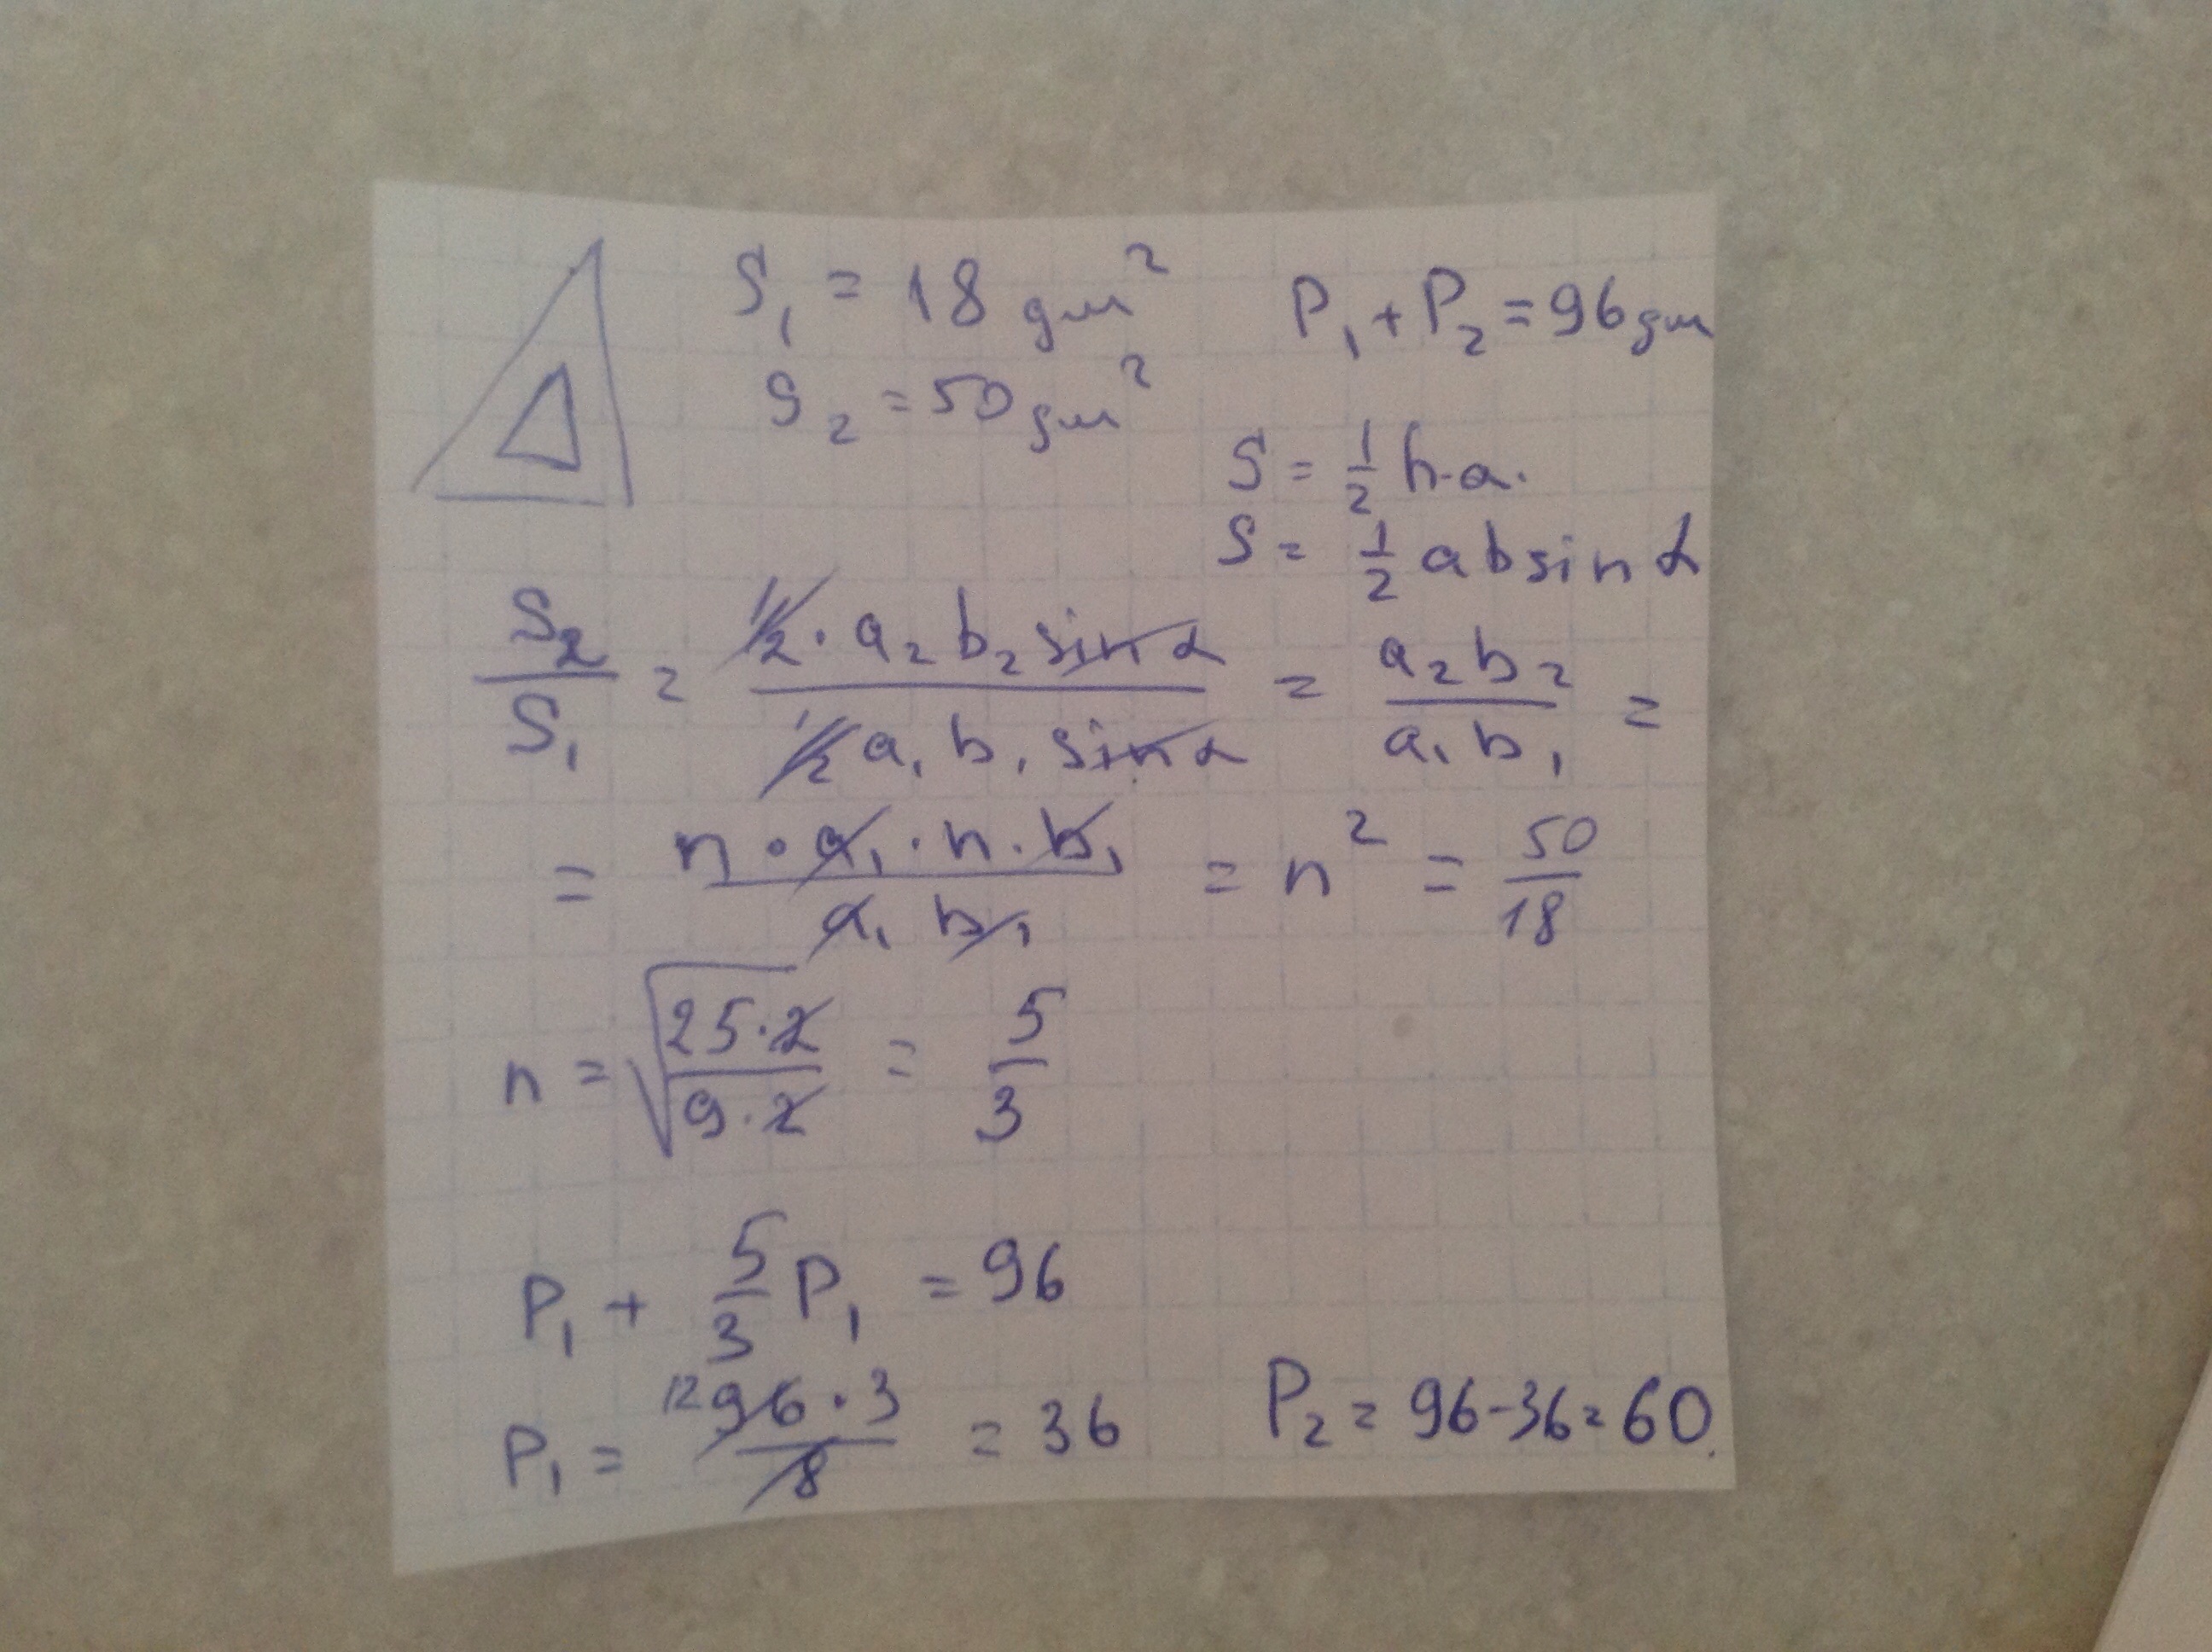 S₁ = 18 дм² P₁ + P₂ = 96 дм
S₂ = 50 дм²
S = 1/2 h·a.
S = 1/2 a b sin α
S₂/S₁ = (1/2 · a₂ b₂ sin α)/(1/2 a₁ b₁ sin α) = (a₂ b₂)/(a₁ b₁) =
= (n · a₁ · n · b₁)/(a₁ b₁) = n² = 50/18
n = √((25·2)/(9·2)) = 5/3
P₁ + 5/3 P₁ = 96
P₁ = (¹²96 · 3)/8 = 36 P₂ = 96 - 36 = 60.